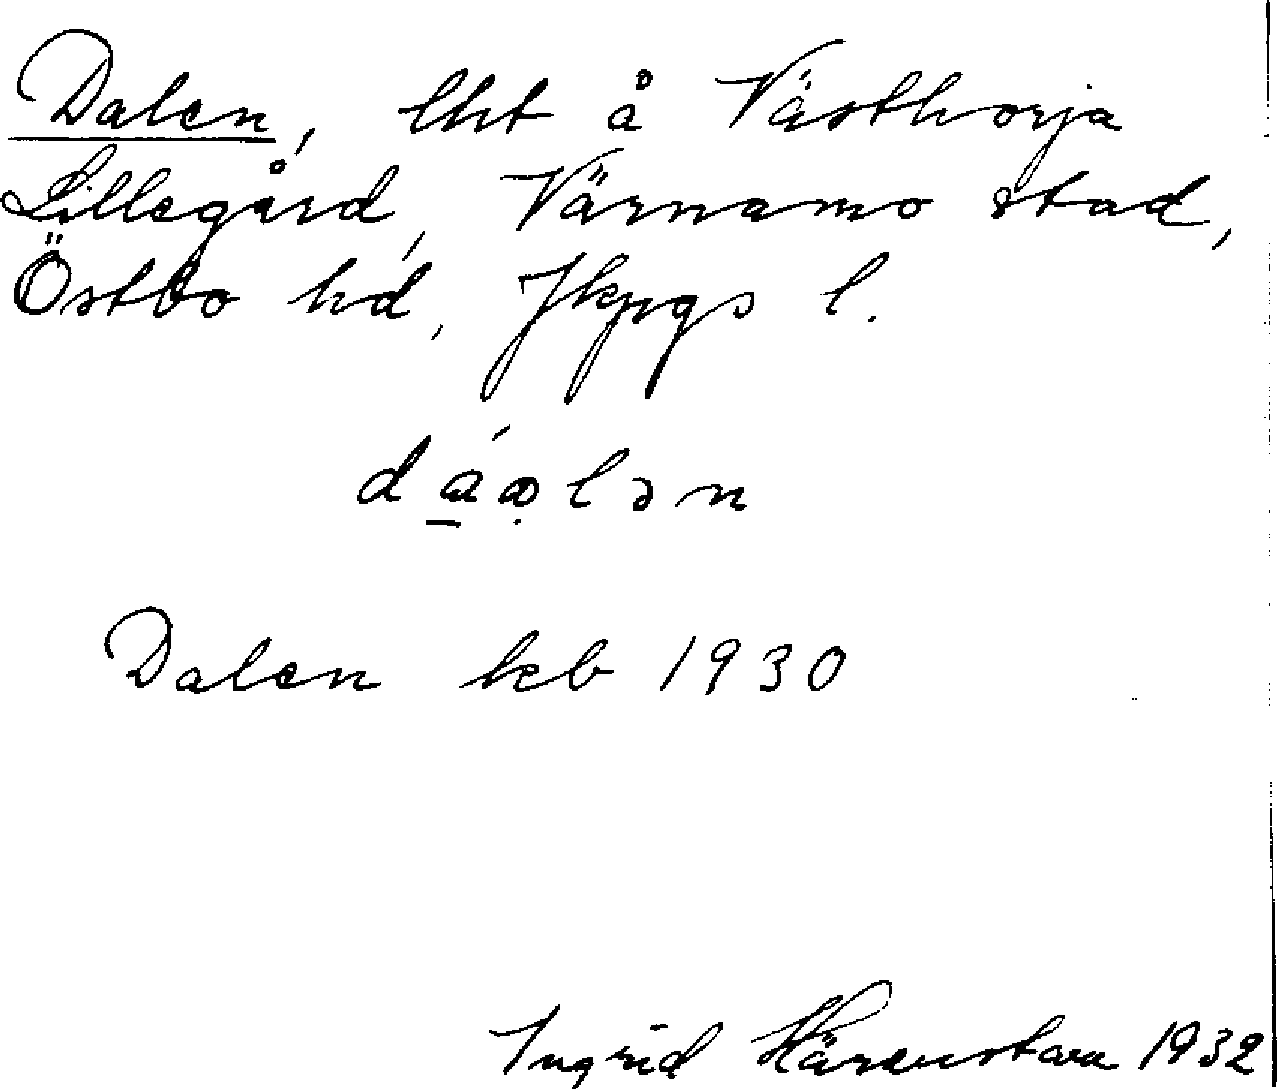 Dalen, lht å Västhorja
Lillegård, Värnamo stad,
Östbo hd, Jkpgs l.
dáꝏlən
Dalen kb 1930
Ingrid Härenstam 1932